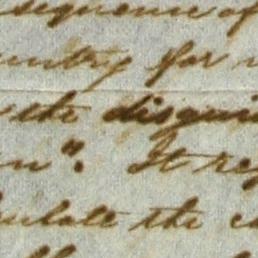 sequence of
untry for
the disgui
n". It re
ulate the